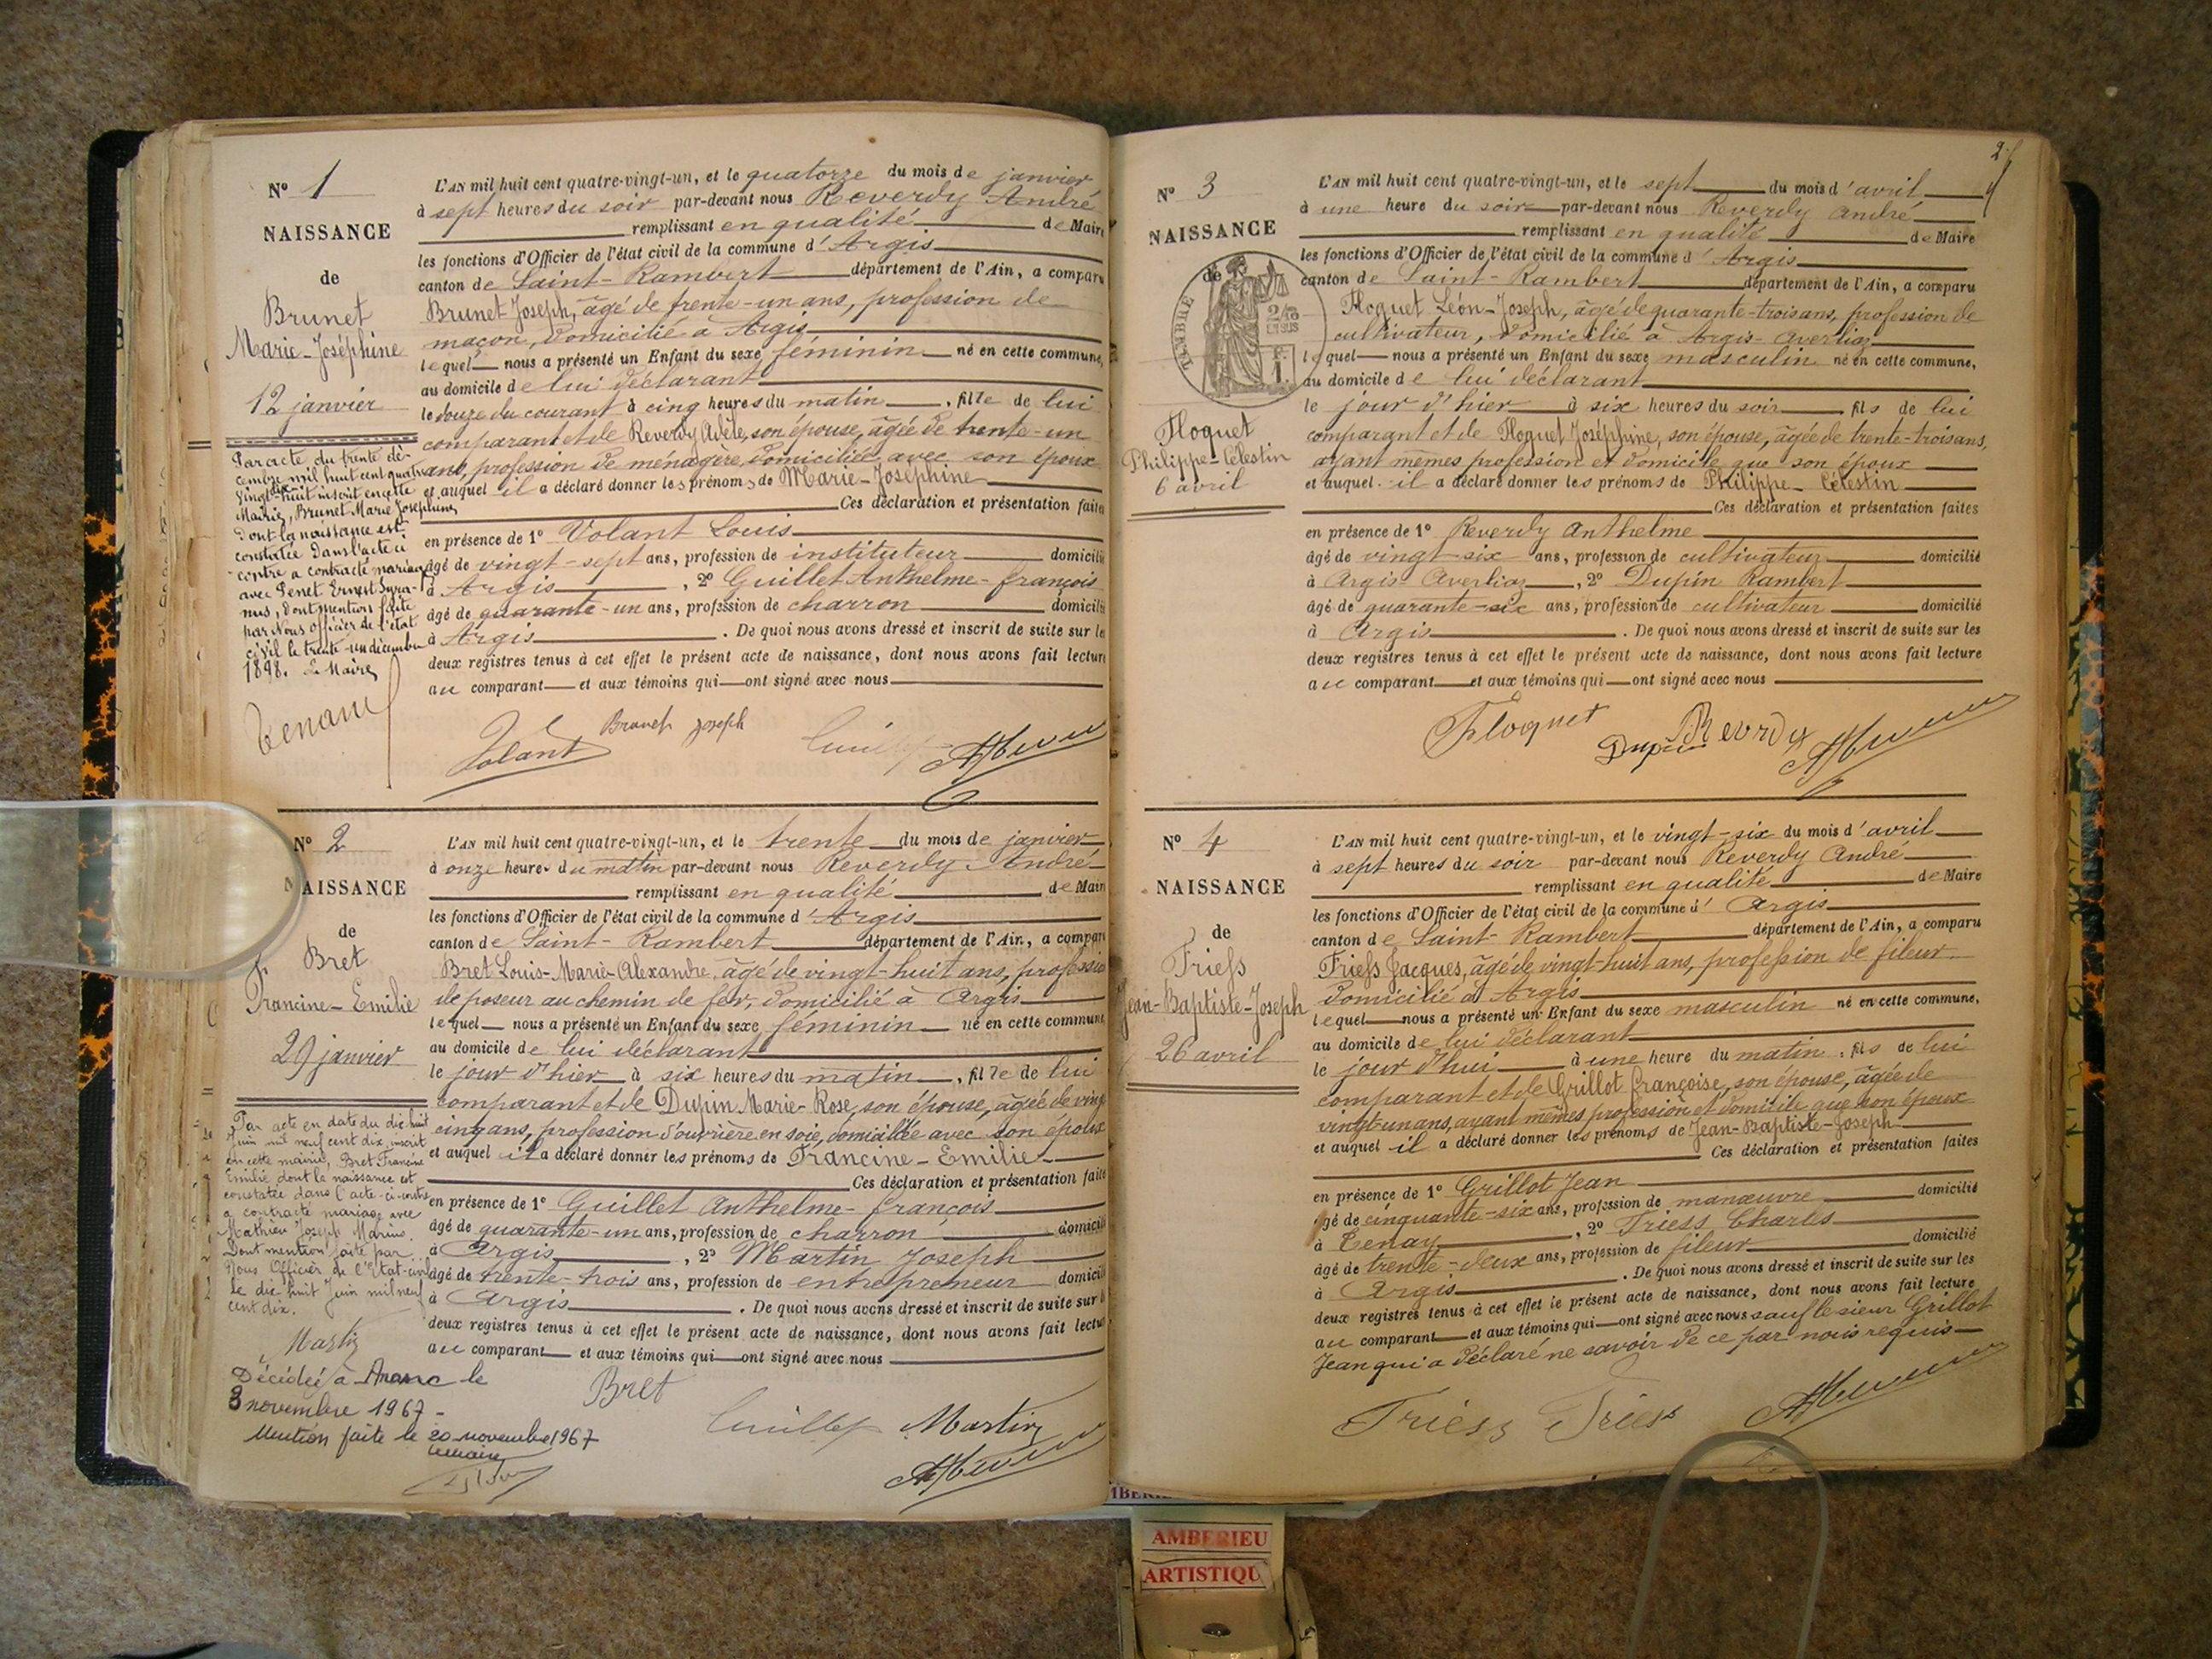 N° 1
NAISSANCE
de
Brunet
Marie-Joséphine
12 janvier
Par acte du trente dé-
cembre mil huit cent quatre
vingt dix huit inscrit en cette
Mairie, Brunet Marie Joséphine,
dont la naissance est
constatée dans l'acte ci
contre a contracté mariage
avec Penet Ernest
dont mention faite
par Nous officier de l'état
civil le trente-un décembre
1898. Le Maire,
L'AN mil huit cent quatre-vingt-un, et le quatorze du mois de janvier
à sept heures du soir par-devant nous Reverdy André
remplissant en qualité de Maire
les fonctions d'Officier de l'état civil de la commune d'Argis
canton de Saint-Rambert département de l'Ain, a comparu
Brunet Joseph, âgé de trente-un ans, profession de
maçon, domicilié à Argis
lequel nous a présenté un Enfant du sexe féminin né en cette commune,
au domicile de lui déclarant
le douze du courant à cinq heures du matin, fille de lui
comparant et de Reverdy Adèle, son épouse, âgée de trente-un
ans, profession de ménagère, domiciliée avec son époux
et auquel il a déclaré donner les prénoms de Marie-Joséphine
Ces déclaration et présentation faites
en présence de 1° Volant Louis
âgé de vingt-sept ans, profession de instituteur domicilié
à Argis, 2° Guillet Anthelme-françois
âgé de quarante-un ans, profession de charron domicilié
à Argis. De quoi nous avons dressé et inscrit de suite sur les
deux registres tenus à cet effet le présent acte de naissance, dont nous avons fait lecture
au comparant et aux témoins qui ont signé avec nous
Volant Brunet Joseph Guillet
N° 2
NAISSANCE
de
Bret
Francine-Emilie
29 janvier
Par acte en date du dix huit
Juin mil neuf cent dix, inscrit
en cette mairie, Bret Francine
Emilie dont la naissance est
constatée dans l'acte ci-contre
a contracté mariage avec
Mathieu Joseph Marius.
Dont mention faite par
Nous Officier de l'Etat-civil
le dix huit Juin mil neuf
cent dix.
Martin
Décédée à Aranc le
8 novembre 1967-
Mention faite le 20 novembre 1967
L'AN mil huit cent quatre-vingt-un, et le trente du mois de janvier
à onze heures du matin par-devant nous Reverdy André
remplissant en qualité de Maire
les fonctions d'Officier de l'état civil de la commune d'Argis
canton de Saint-Rambert département de l'Ain, a comparu
Bret Louis-Marie-Alexandre, âgé de vingt-huit ans, profession
de poseur au chemin de fer, domicilié à Argis
lequel nous a présenté un Enfant du sexe féminin né en cette commune,
au domicile de lui déclarant
le jour d'hier à six heures du matin, fille de lui
comparant et de Dupin Marie-Rose, son épouse, âgée de vingt
cinq ans, profession d'ouvrière en soie, domiciliée avec son époux
et auquel il a déclaré donner les prénoms de Francine-Emilie
Ces déclaration et présentation faites
en présence de 1° Guillet Anthelme-françois
âgé de quarante-un ans, profession de charron domicilié
à Argis, 2° Martin Joseph
âgé de trente-trois ans, profession de entrepreneur domicilié
à Argis. De quoi nous avons dressé et inscrit de suite sur les
deux registres tenus à cet effet le présent acte de naissance, dont nous avons fait lecture
au comparant et aux témoins qui ont signé avec nous
Bret
Guillet Martin
N° 3
NAISSANCE
de
TIMBRE
Floquet
Philippe-Célestin
6 avril
L'AN mil huit cent quatre-vingt-un, et le sept du mois d'avril
à une heure du soir par-devant nous Reverdy André
remplissant en qualité de Maire
les fonctions d'Officier de l'état civil de la commune d'Argis
canton de Saint-Rambert département de l'Ain, a comparu
Floquet Léon-Joseph, âgé de quarante-trois ans, profession de
cultivateur, domicilié à Argis-Averliaz
lequel nous a présenté un Enfant du sexe masculin né en cette commune,
au domicile de lui déclarant
le jour d'hier à six heures du soir, fils de lui
comparant et de Floquet Joséphine, son épouse, âgée de trente-trois ans,
ayant mêmes profession et domicile que son époux
et auquel il a déclaré donner les prénoms de Philippe-Célestin
Ces déclaration et présentation faites
en présence de 1° Reverdy Anthelme
âgé de vingt-six ans, profession de cultivateur domicilié
à Argis Averliaz, 2° Dupin Rambert
âgé de quarante-six ans, profession de cultivateur domicilié
à Argis. De quoi nous avons dressé et inscrit de suite sur les
deux registres tenus à cet effet le présent acte de naissance, dont nous avons fait lecture
au comparant et aux témoins qui ont signé avec nous
Floquet Dupin Revrdy
N° 4
NAISSANCE
de
Friess
Jean-Baptiste-Joseph
26 avril
L'AN mil huit cent quatre-vingt-un, et le vingt-six du mois d'avril
à sept heures du soir par-devant nous Reverdy André
remplissant en qualité de Maire
les fonctions d'Officier de l'état civil de la commune d'Argis
canton de Saint-Rambert département de l'Ain, a comparu
Friess Jacques, âgé de vingt-huit ans, profession de fileur
domicilié à Argis
lequel nous a présenté un Enfant du sexe masculin né en cette commune,
au domicile de lui déclarant
le jour d'hui à une heure du matin, fils de lui
comparant et de Grillot françoise, son épouse, âgée de
vingt-un ans, ayant mêmes profession et domicile que son époux
et auquel il a déclaré donner les prénoms de Jean-Baptiste-Joseph
Ces déclaration et présentation faites
en présence de 1° Grillot Jean
âgé de cinquante-six ans, profession de manœuvre domicilié
à Tenay, 2° Friess Charles
âgé de trente-deux ans, profession de fileur domicilié
à Argis. De quoi nous avons dressé et inscrit de suite sur les
deux registres tenus à cet effet le présent acte de naissance, dont nous avons fait lecture
au comparant et aux témoins qui ont signé avec nous sauf le sieur Grillot
Jean qui a déclaré ne savoir de ce par nous requis
Friess Friess
AMBERIEU
ARTISTIQU